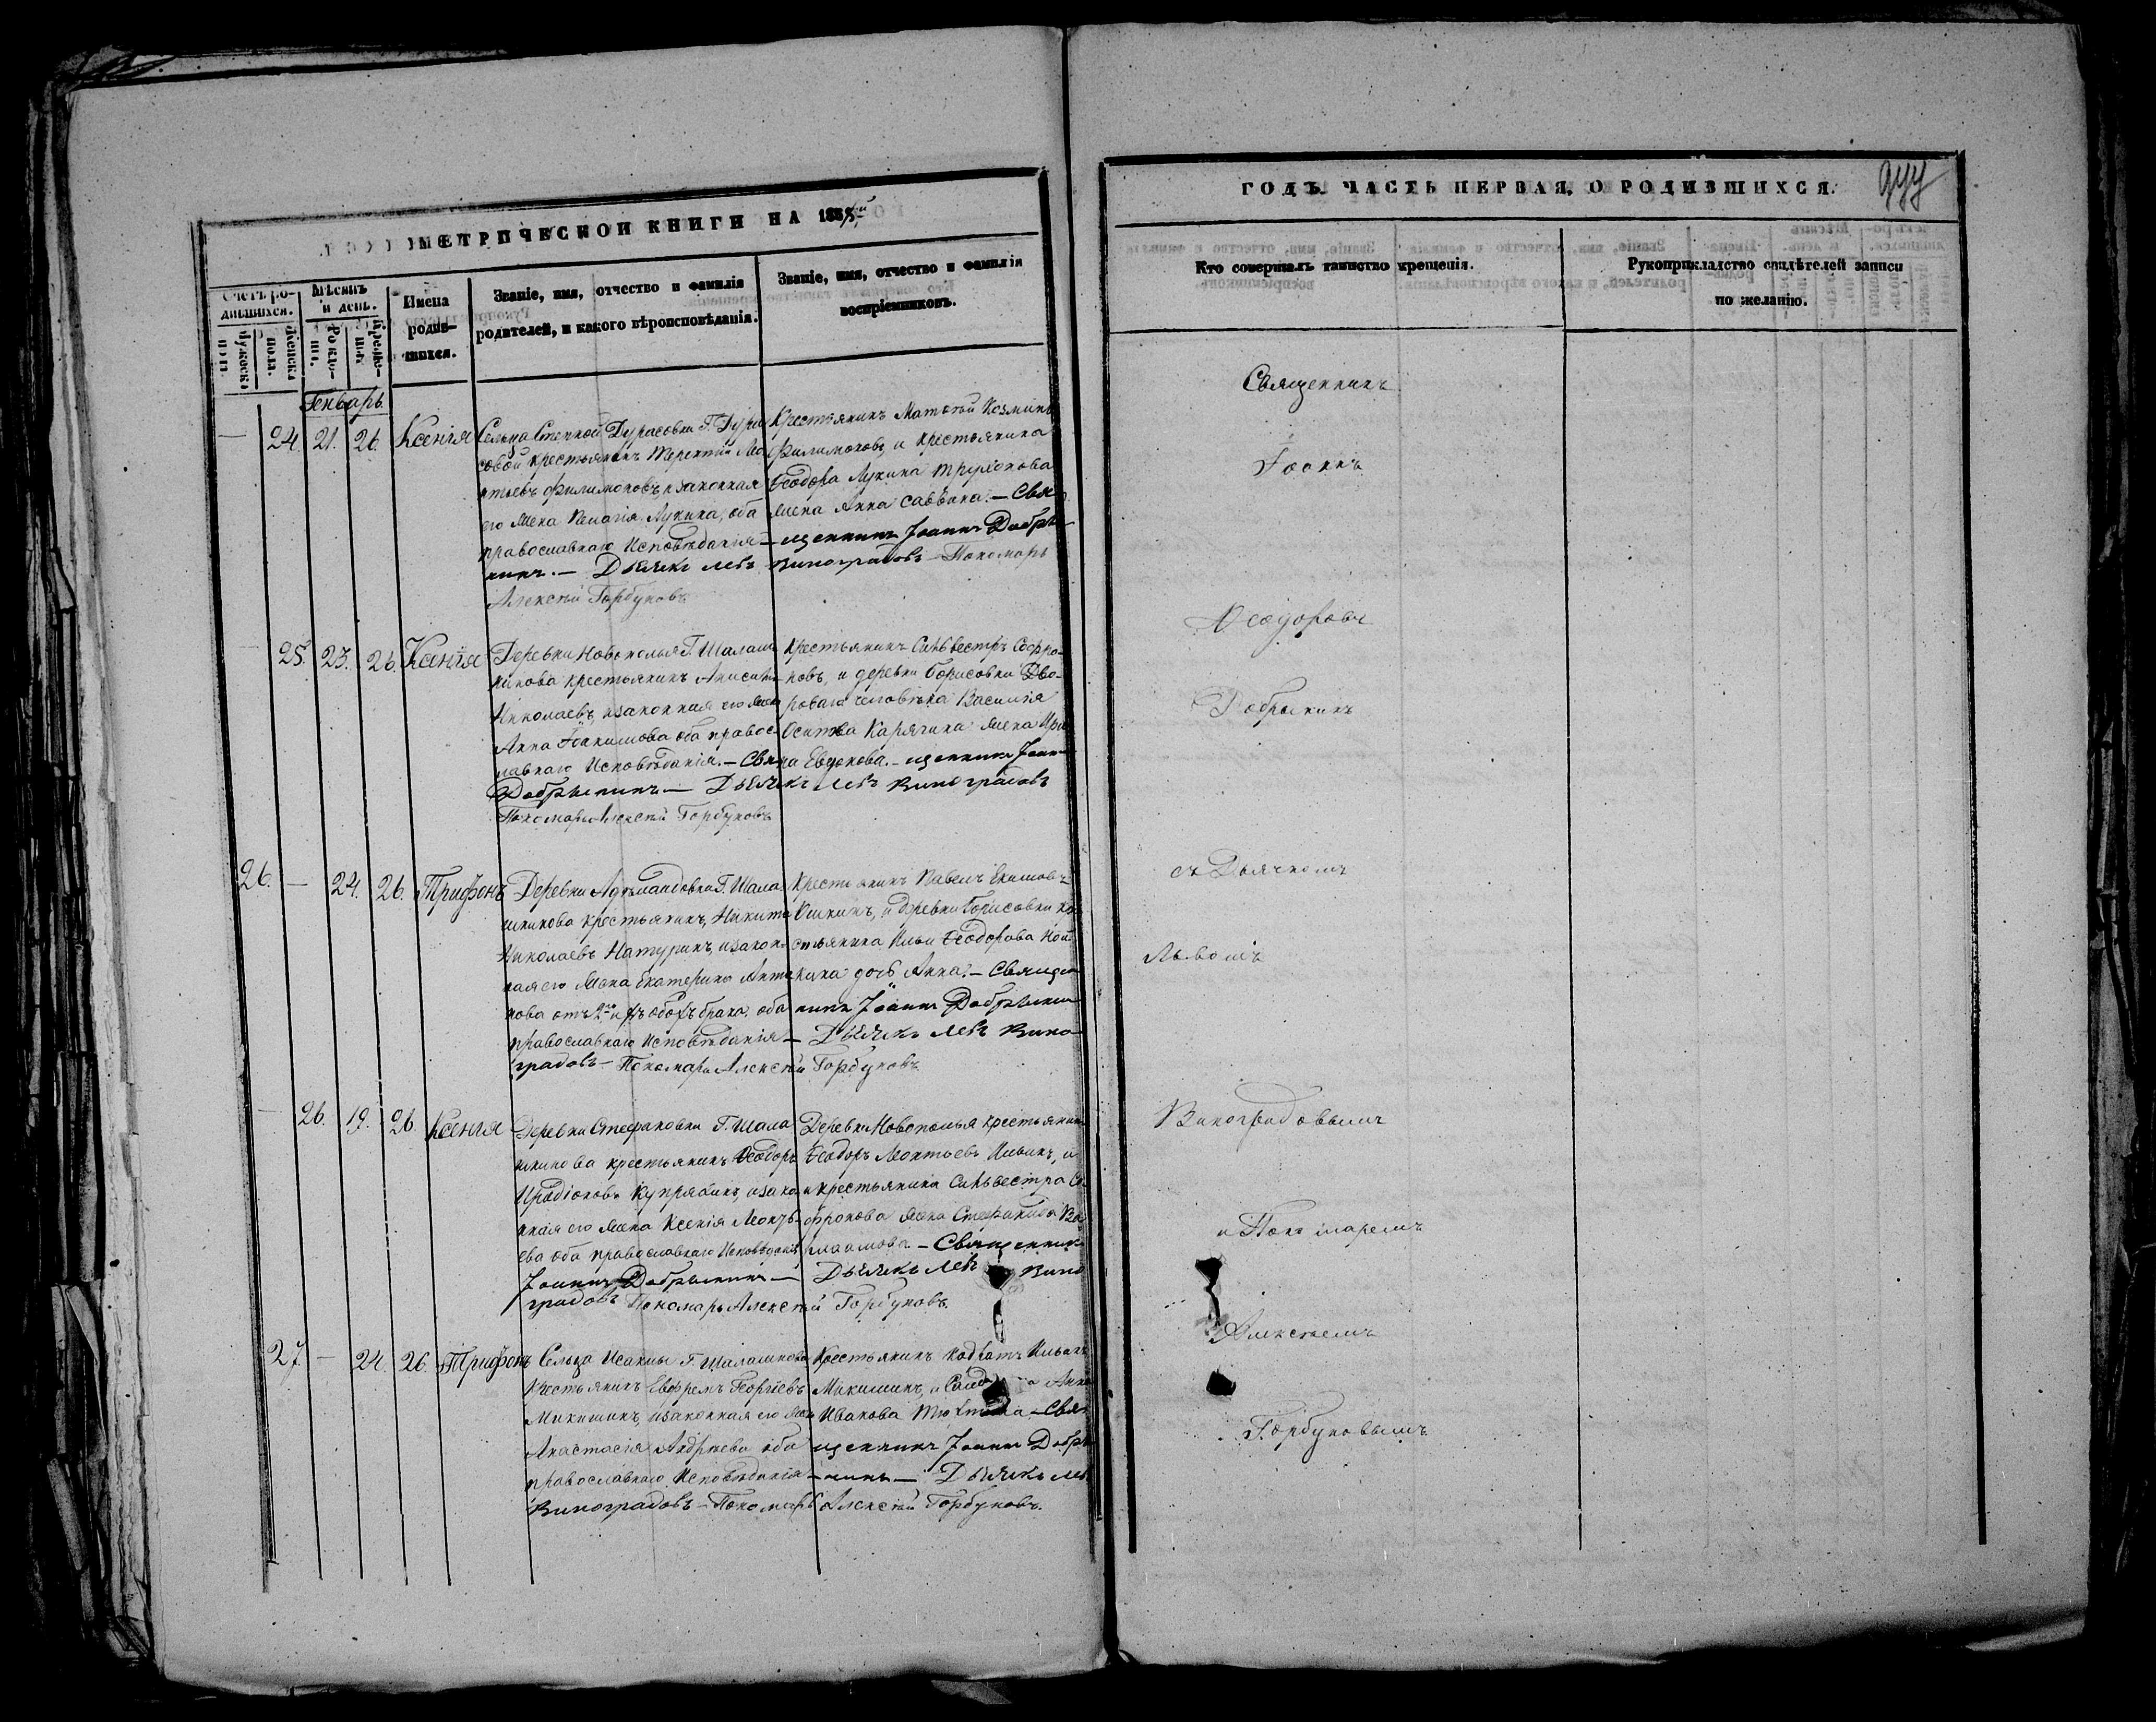 МЕТРИЧЕСКОЙ КНИГИ НА 185
Счетъ ро-
дившихся.
Мужеска
пола.
Женска
пола.
Мѣсяцъ
и день.
Рожде-
нія.
Креще-
нія.
Имена
родив-
шихся.
Званіе, имя, отчество и фамилія
родителей, и какого вѣроисповѣданія.
Званіе, имя, отчество и фамилія
воспріемниковъ.
Генварь
— 24. 21. 26. Ксенія
Сельца Степной Дурасовки Г. Дура-
совой крестьянинъ Терентій Лео-
нтьевъ Филимоновъ, и законная
его жена Пелагія Лукина, оба
православнаго Исповѣданія —
Крестьянинъ Матѳей Козминъ
Филимоновъ, и крестьянина
Ѳеодора Лукина Трифонова
жена Анна Саввина. — Свя-
щенникъ Іоаннъ Добры-
нинъ. — Дьячекъ Левъ Виноградовъ — Пономарь
Алексѣй Горбуновъ
— 25. 23. 26. Ксенія
Деревни Новополья Г. Шалаш-
никова крестьянинъ Анисимъ
Николаевъ, и законная его жена
Анна Іоакимова оба правос-
лавнаго Исповѣданія. — Свя-
Крестьянинъ Сильвестръ Софро-
новъ, и деревни Борисовки Дво-
роваго человѣка Василія
Осипова Карячина жена Ири-
на Евдокимова. — щенникъ Іоаннъ
Добрынинъ — Дьячекъ Левъ Виноградовъ
Пономарь Алексѣй Горбуновъ
26. — 24. 26. Трифонъ
Деревни Г. Шала-
шникова крестьянинъ, Никита
Николаевъ Натуринъ, и закон-
ная его жена Екатерина Анто-
нова отъ 2го и обоихъ брака. оба
православнаго Исповѣданія —
Крестьянинъ Павелъ Екимовъ
и деревни Борисовки кре-
стьянина Ильи Ѳеодорова
дочь Анна. — Священ-
никъ Іоаннъ Добрынинъ
Дьячекъ Левъ Вино-
градовъ — Пономарь Алексѣй Горбуновъ
— 26. 19. 26. Ксенія
Деревни Стефановки Г. Шала-
шникова крестьянинъ Ѳеодоръ
Иродіоновъ Купряхинъ, и зако-
нная его жена Ксенія Леонть-
ева оба православнаго Исповѣданія
Деревни Новополья крестьянинъ
Ѳеодоръ Леонтьевъ Ильинъ, и
крестьянина Сильвестра Со-
фронова жена Стефанида Ва-
рлаамова — Священникъ
Іоаннъ Добрынинъ — Дьячекъ Левъ Вино-
градовъ Пономарь Алексѣй Горбуновъ.
27. — 24. 26. Трифонъ
Сельца Исаклы Г. Шалашникова
Крестьянинъ Ефремъ Георгіевъ
Микишинъ, и законная его жена
Анастасія Андреева оба
православнаго Исповѣданія —
Крестьянинъ Кодратъ Ильинъ
Микишинъ, и Анна
Иванова — Свя-
щенникъ Іоаннъ Добры-
нинъ — Дьячекъ Левъ
Виноградовъ — Пономарь Алексѣй Горбуновъ.
ГОДЪ. ЧАСТЬ ПЕРВАЯ, О РОДИВШИХСЯ.
Кто совершалъ таинство крещенія.
Рукоприкладство свидѣтелей записи
по желанію.
Священникъ
Іоаннъ
Ѳеодоровъ
Добрынинъ
съ Дьячкомъ
Львомъ
Виноградовымъ
и Пономаремъ
Алексѣемъ
Горбуновымъ